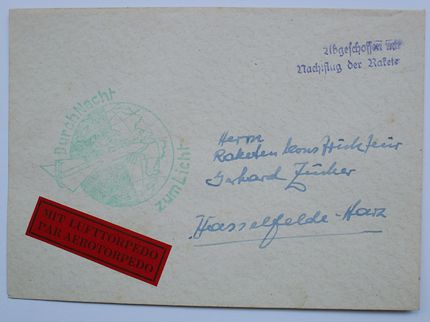 Abgeschossen mit
Nachtflug der Rakete
Durch Nacht
zum Licht
Herrn
Raketenkonstrukteur
Gerhard Zucker
Hasselfelde-Harz
MIT LUFTTORPEDO
PAR AEROTORPEDO